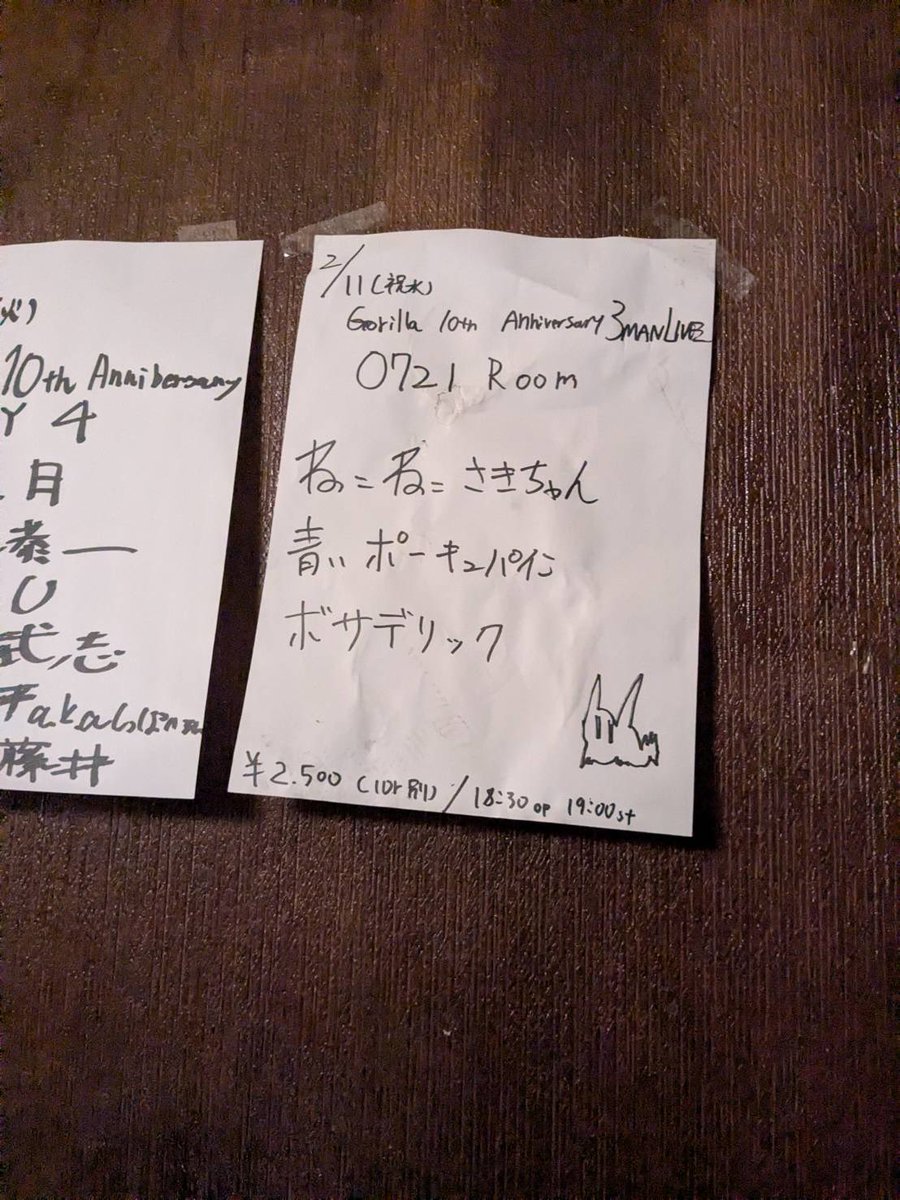 火)
10th Annibersary
Y 4
月
泰一
U
武志
Takaしぽんぬ
藤井
2/11(祝水)
Gorilla 10th Anniversary 3MAN LIVE
0721 Room
ねこねこさきちゃん
青いポーキュパイン
ボサデリック
¥2.500 (1Dr別) / 18:30 op 19:00 st